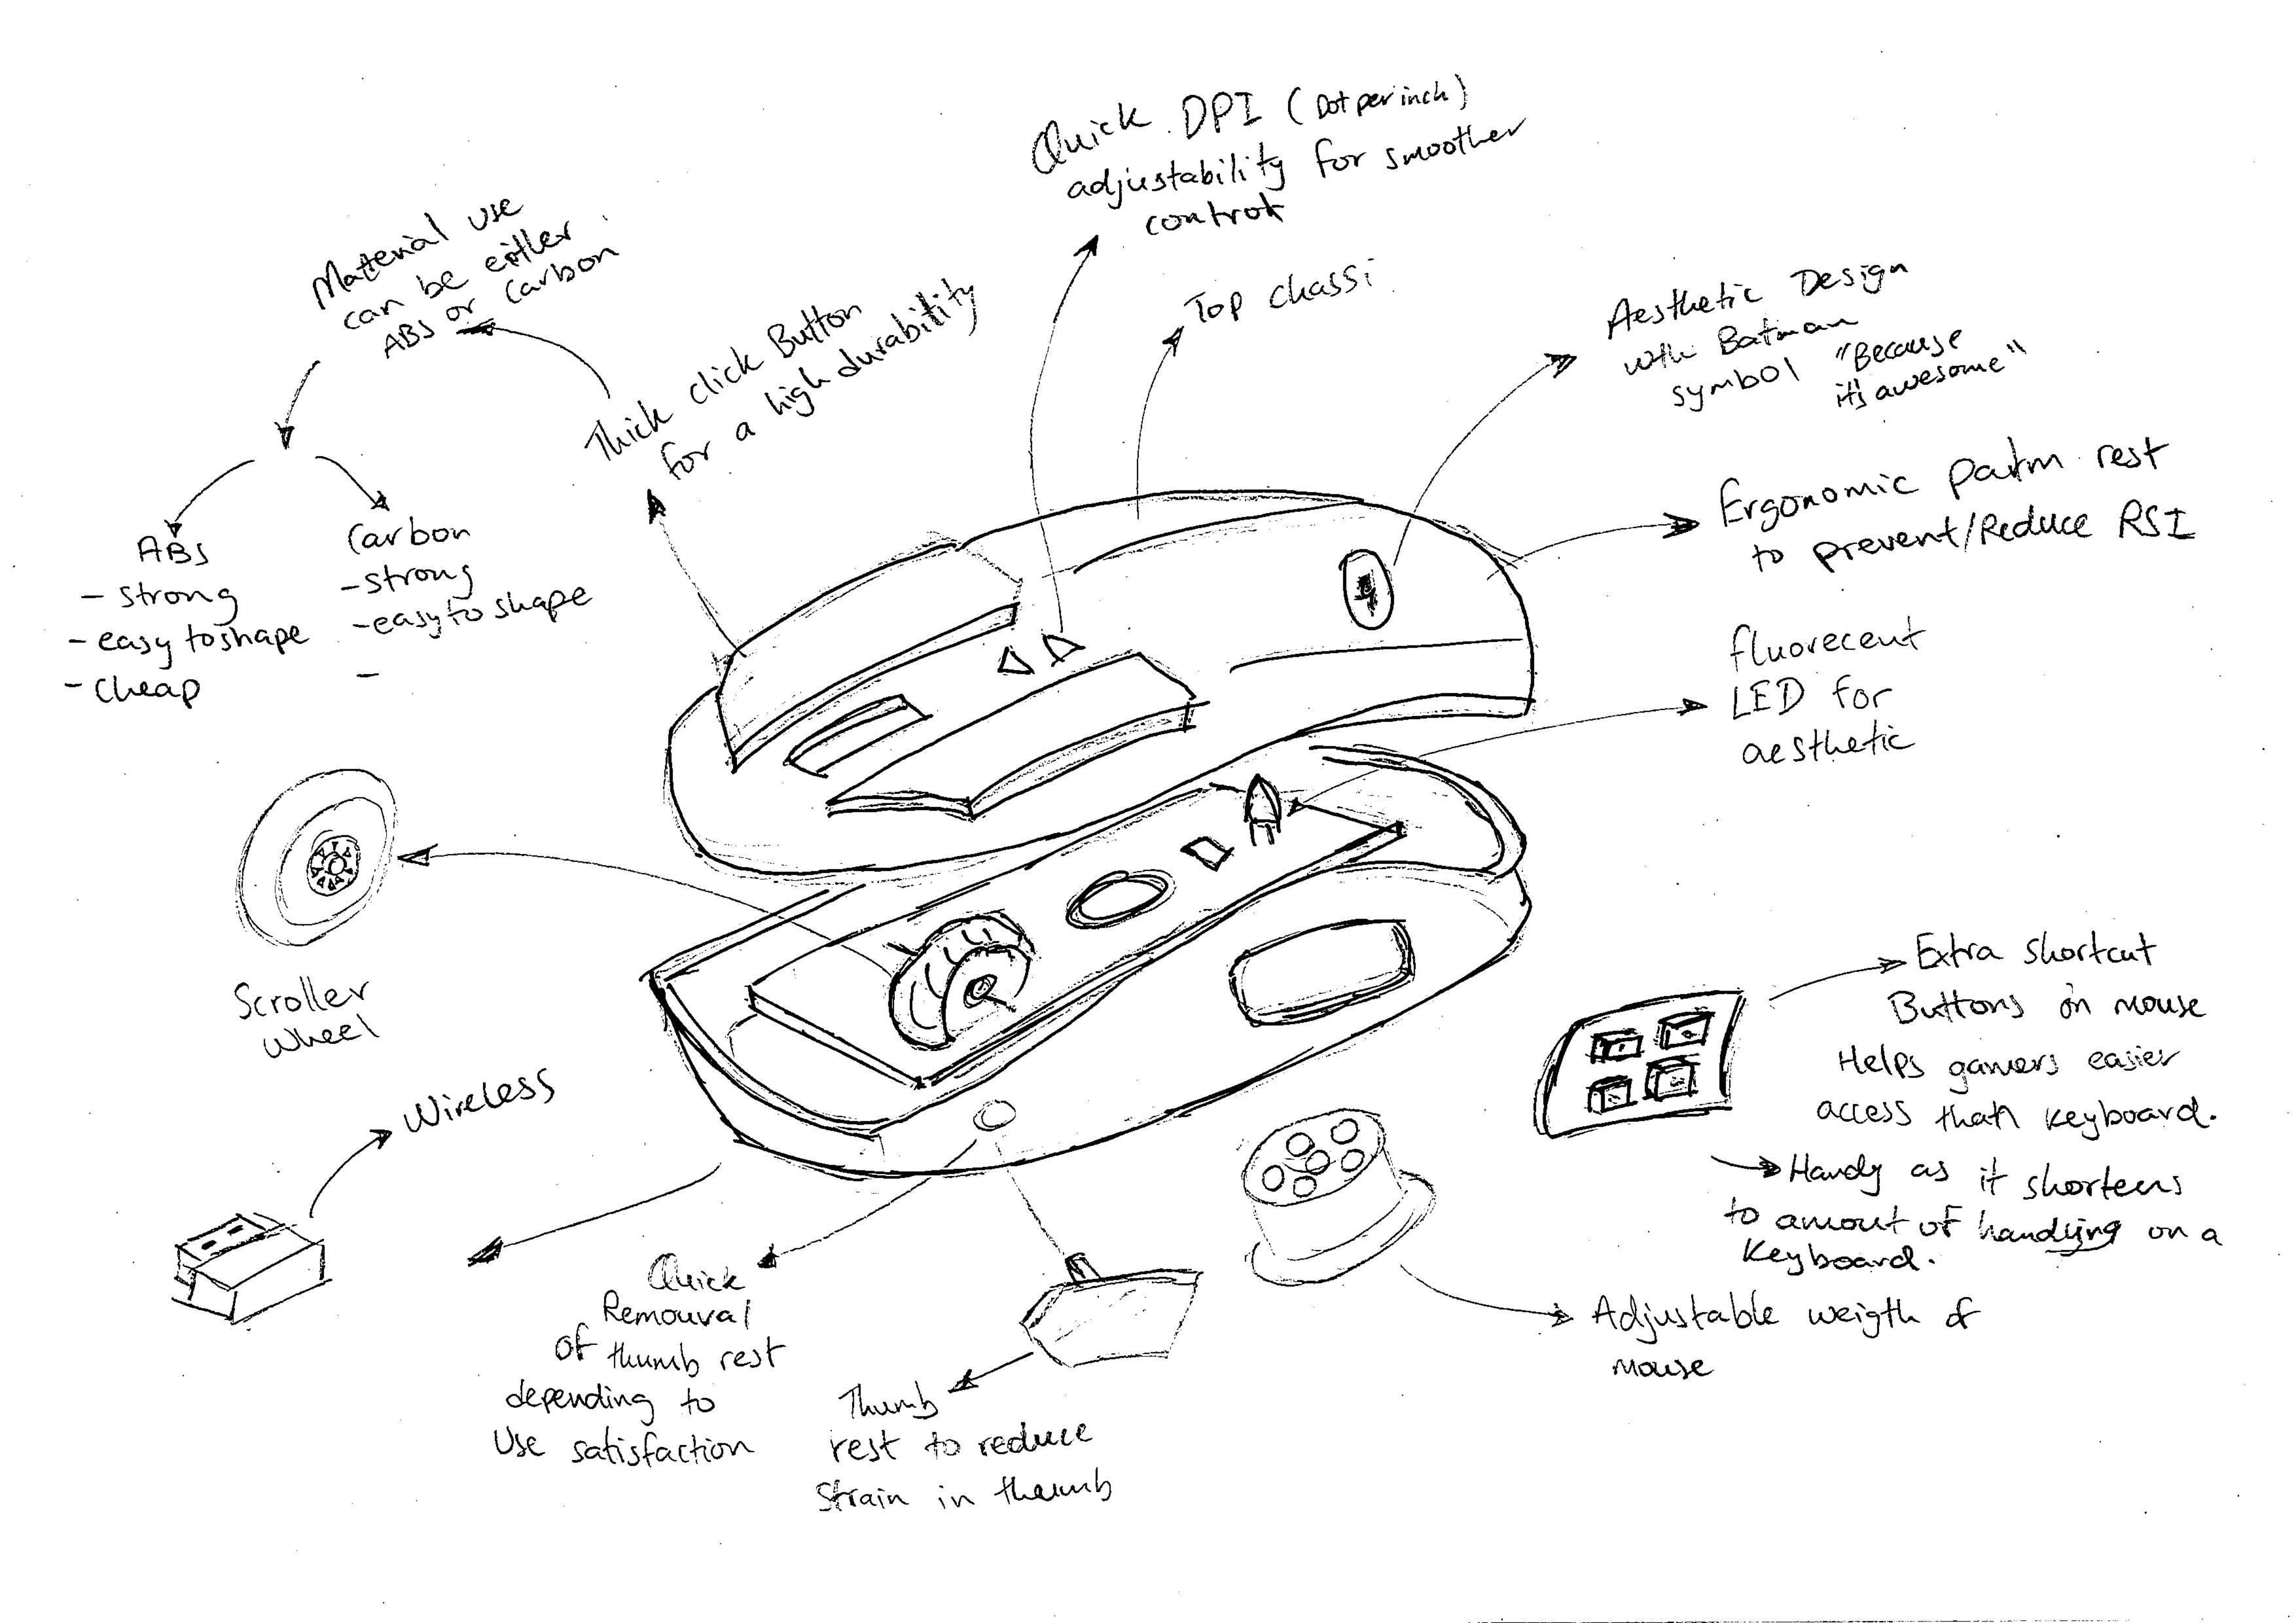 Quick DPI (Dot per inch)
adjustability for smoother
control
Material use
can be either
ABS or Carbon
Top chassi
Thick click Button
for a high durability
Aesthetic Design
with Batman
symbol "Because
it's awesome"
Ergonomic palm rest
to prevent/Reduce RSI
ABS
- strong
- easy to shape
- cheap
Carbon
- strong
- easy to shape
-
fluorecent
LED for
aesthetic
Scroller
Wheel
Wireless
Extra shortcut
Buttons on mouse
Helps gamers easier
access than keyboard.
Handy as it shorteens
to amout of handling on a
keyboard.
Quick
Remouval
of thumb rest
depending to
Use satisfaction
Thumb
rest to reduce
Strain in thumb
Adjustable weigth of
mouse